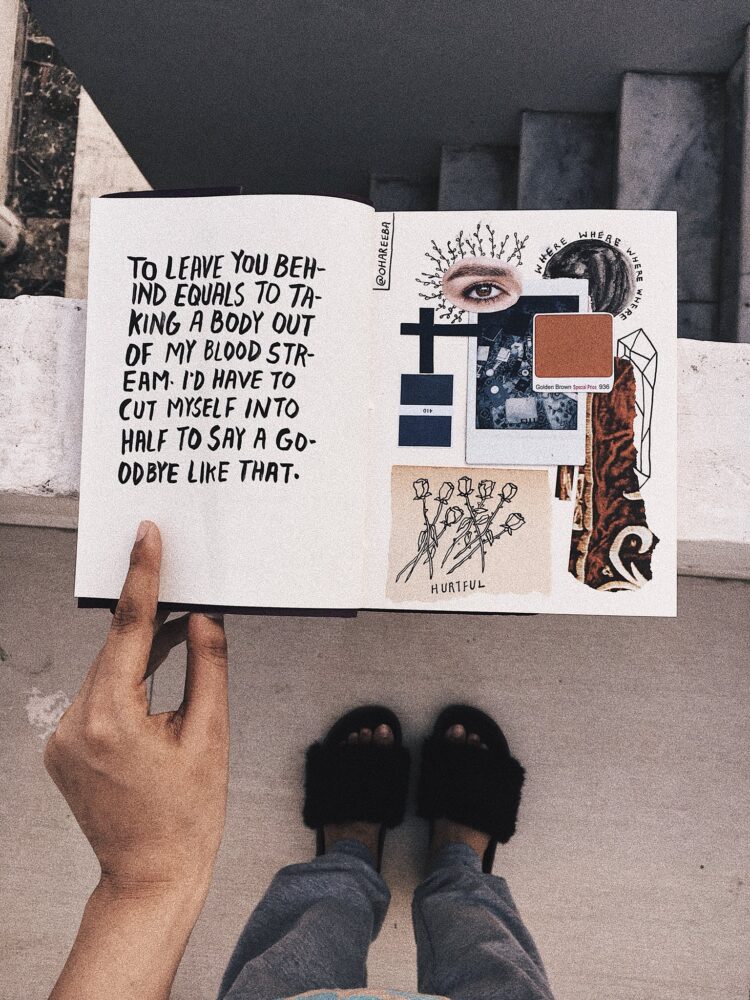 TO LEAVE YOU BEH-
IND EQUALS TO TA-
KING A BODY OUT
OF MY BLOOD STR-
EAM. I'D HAVE TO
CUT MYSELF INTO
HALF TO SAY A GO-
ODBYE LIKE THAT.
@OHAREEBA
WHERE WHERE WHERE WHERE
Golden Brown Special Price 936
410
HURTFUL